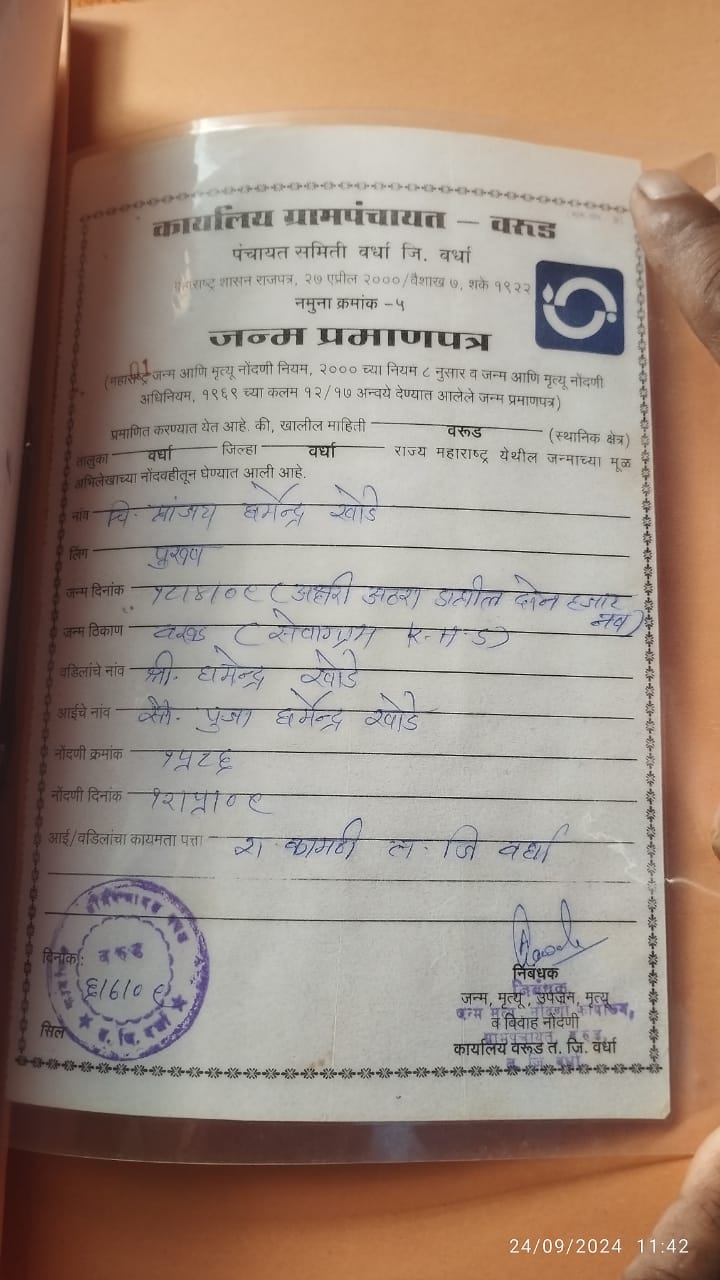 कार्यालय ग्रामपंचायत – वरूड
पंचायत समिती वर्धा जि. वर्धा
महाराष्ट्र शासन राजपत्र, २७ एप्रील २०००/वैशाख ७, शके १९२२
नमुना क्रमांक -५
जन्म प्रमाणपत्र
(महाराष्ट्र जन्म आणि मृत्यू नोंदणी नियम, २००० च्या नियम ८ नुसार व जन्म आणि मृत्यू नोंदणी
अधिनियम, १९६९ च्या कलम १२/१७ अन्वये देण्यात आलेले जन्म प्रमाणपत्र)
प्रमाणित करण्यात येत आहे. की, खालील माहिती वरूड (स्थानिक क्षेत्र)
तालुका वर्धा जिल्हा वर्धा राज्य महाराष्ट्र येथील जन्माच्या मूळ
अभिलेखाच्या नोंदवहीतून घेण्यात आली आहे.
नांव चि. धर्मेन्द्र खोडे
लिंग पुरूष
जन्म दिनांक १८/४/०९ (अठरा दोन हजार
नव)
जन्म ठिकाण वरूड (सेवाग्राम K-H-S)
वडिलांचे नांव श्री. धर्मेन्द्र खोडे
आईचे नांव सौ. पुजा धर्मेन्द्र खोडे
नोंदणी क्रमांक १५८६
नोंदणी दिनांक १२/५/०९
आई/वडिलांचा कायमता पत्ता रा. कामठी त. जि वर्धा
दिनांक: ६/६/०९
वरूड
सिल
निबंधक
निबंधक
जन्म, मृत्यू, उपजन, मृत्यू
व विवाह नोंदणी
ग्रामपंचायत वरूड
कार्यालय वरूड त. जि. वर्धा
24/09/2024 11:42